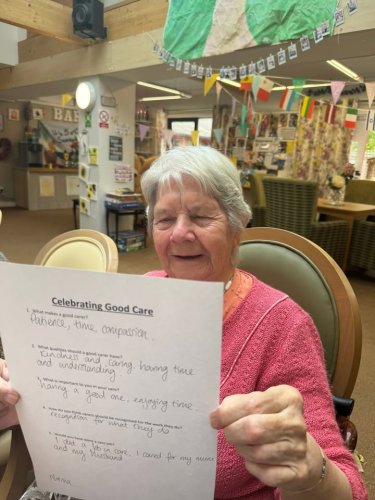 BAR
Celebrating Good Care
1. What makes a good carer?
Patience, time, compassion.
2. What qualities should a good carer have?
Kindness and caring, having time
and understanding
3. What is important to you in your care?
Having a good one, enjoying time.
4. How do you think carers should be recognised for the work they do?
recognition for what they do
5. Would you have done a care job?
I did a job in care, I cared for my mum
and my husband